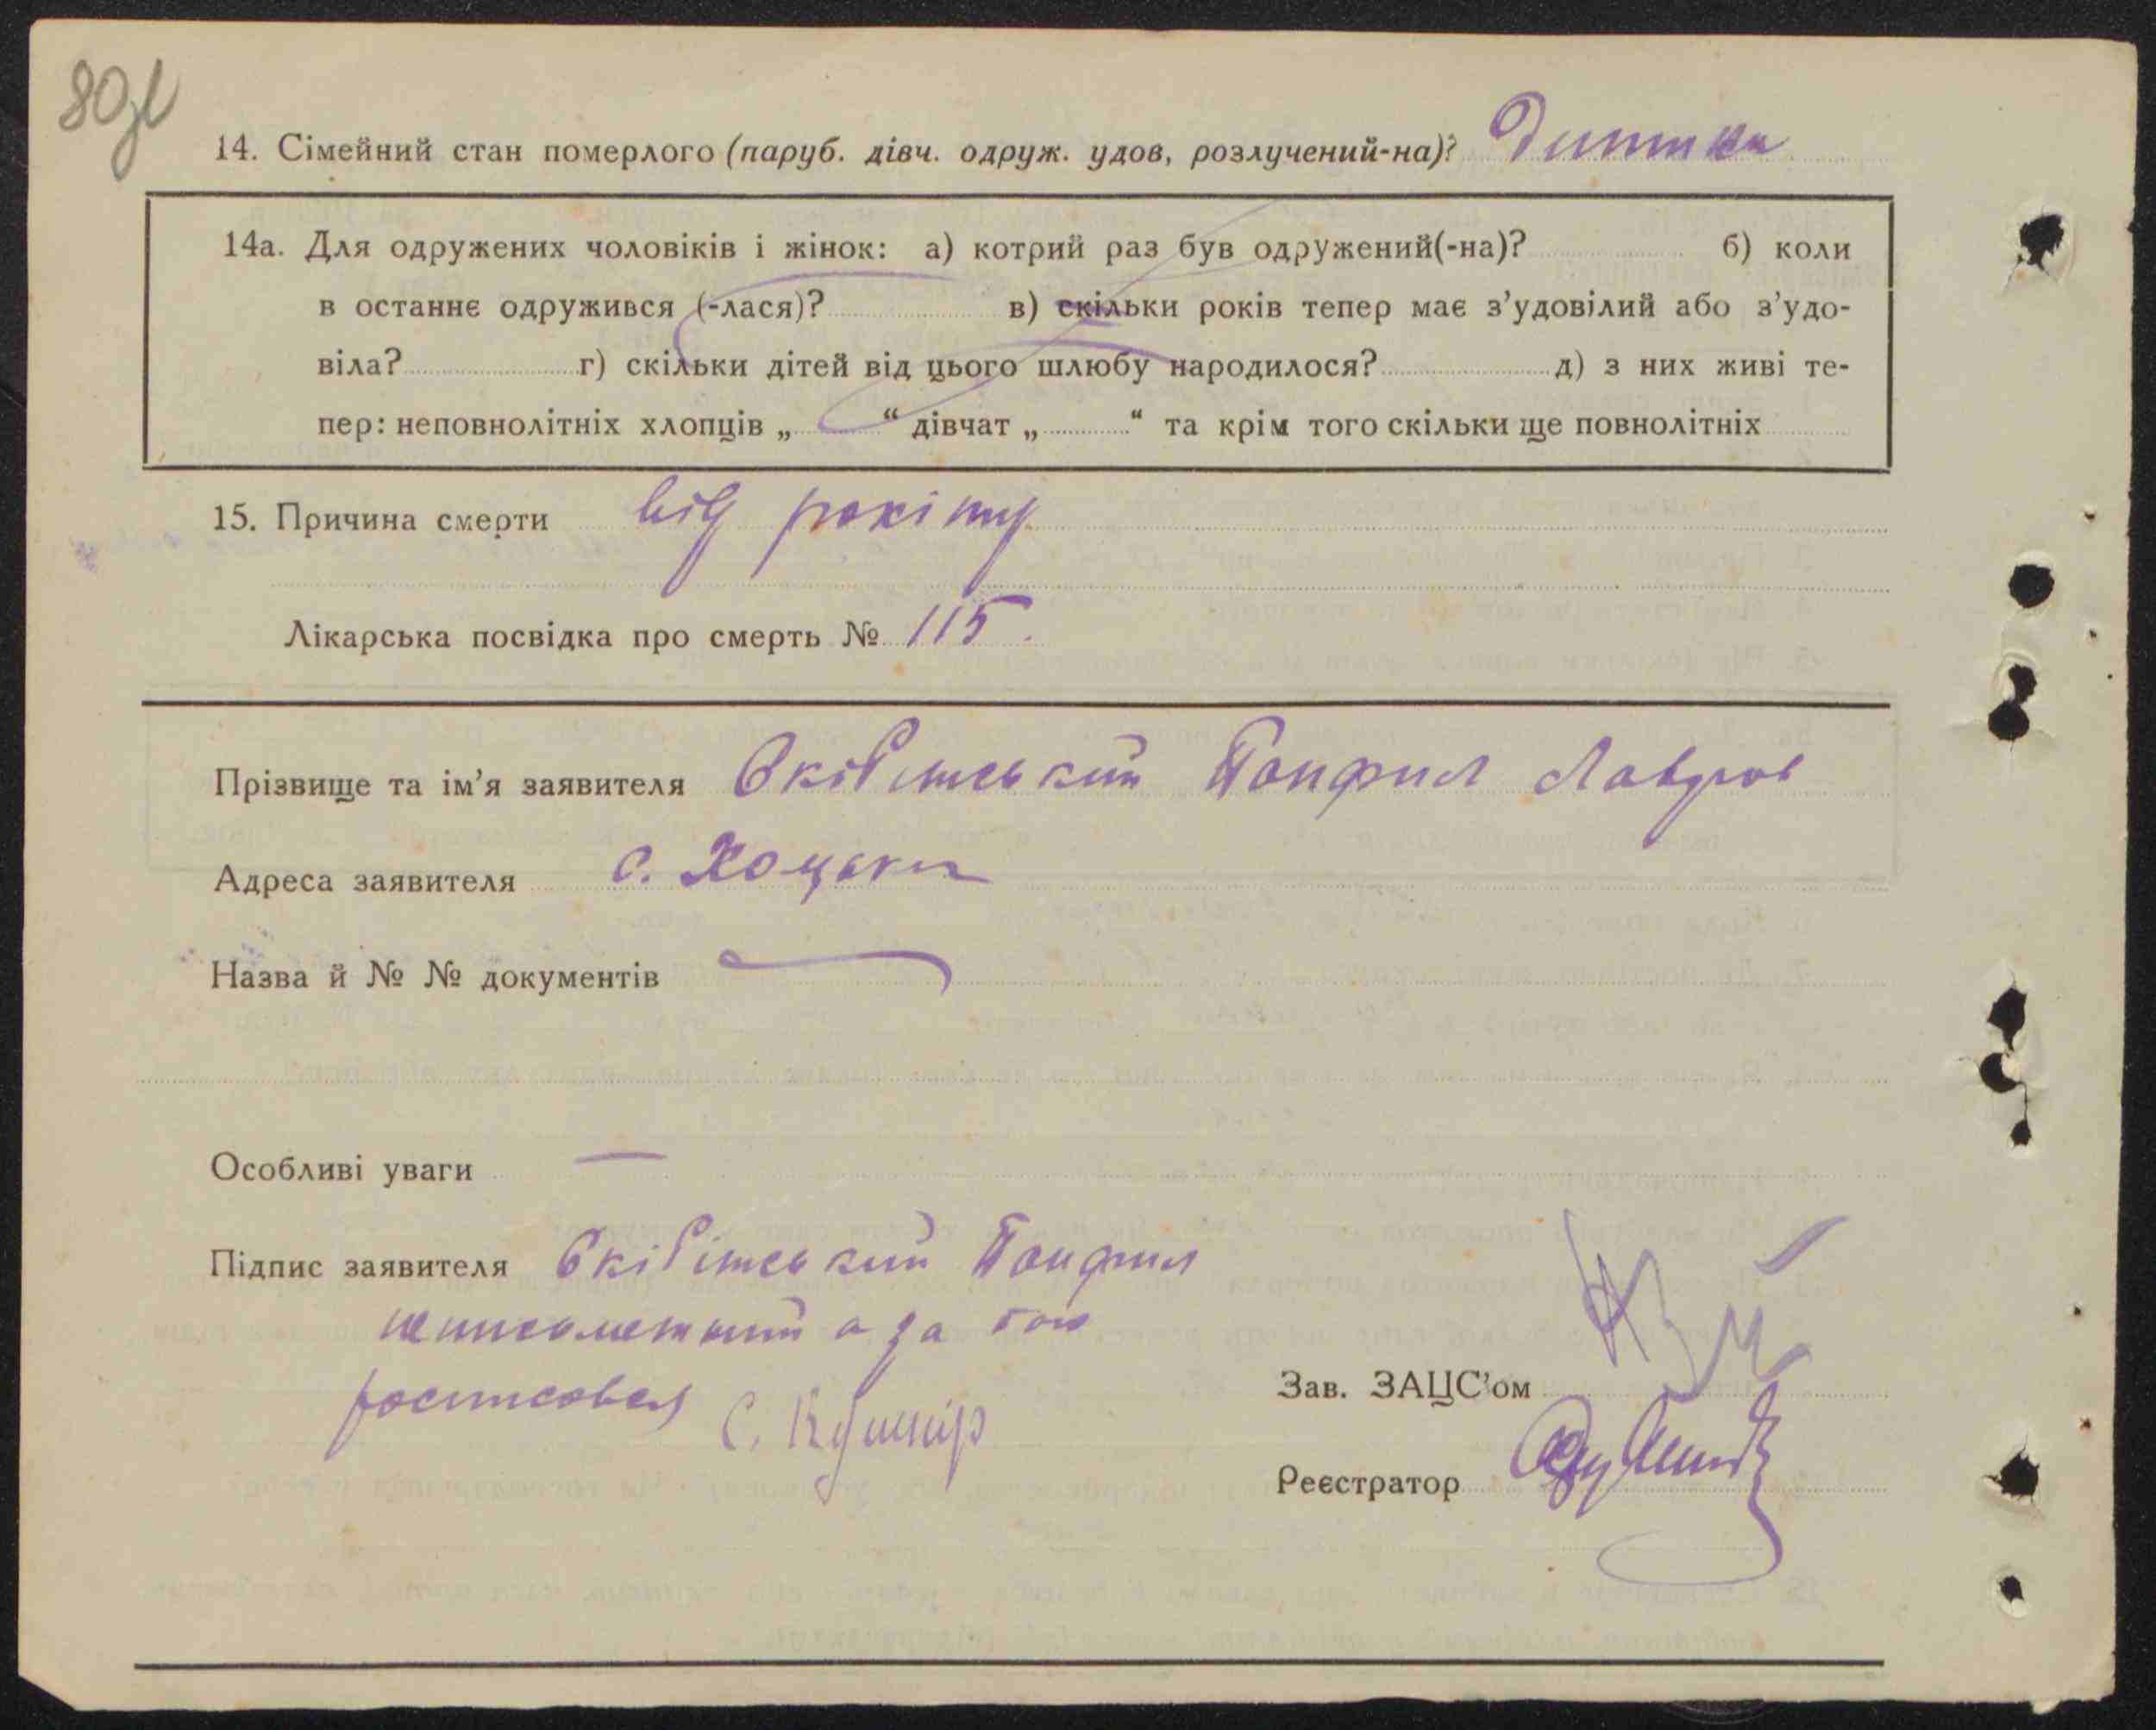 80
14. Сімейний стан померлого (паруб. дівч. одруж. удов, розлучений-на)? Дитина
14а. Для одружених чоловіків і жінок: а) котрий раз був одружений(-на)? б) коли
в останнє одружився (-лася)? в) скільки років тепер має з’удовілий або з’удо-
віла? г) скільки дітей від цього шлюбу народилося? д) з них живі те-
пер: неповнолітніх хлопців „ “ дівчат „ “ та крім того скільки ще повнолітніх
15. Причина смерти від рахіту
Лікарська посвідка про смерть № 115.
Прізвище та ім’я заявителя Панфил Лавров
Адреса заявителя с. Хоцьки
Назва й № № документів
Особливі уваги —
Підпис заявителя Панфил
неписьметний а за його
росписався С. Кушнір
Зав. ЗАЦС’ом
Реєстратор